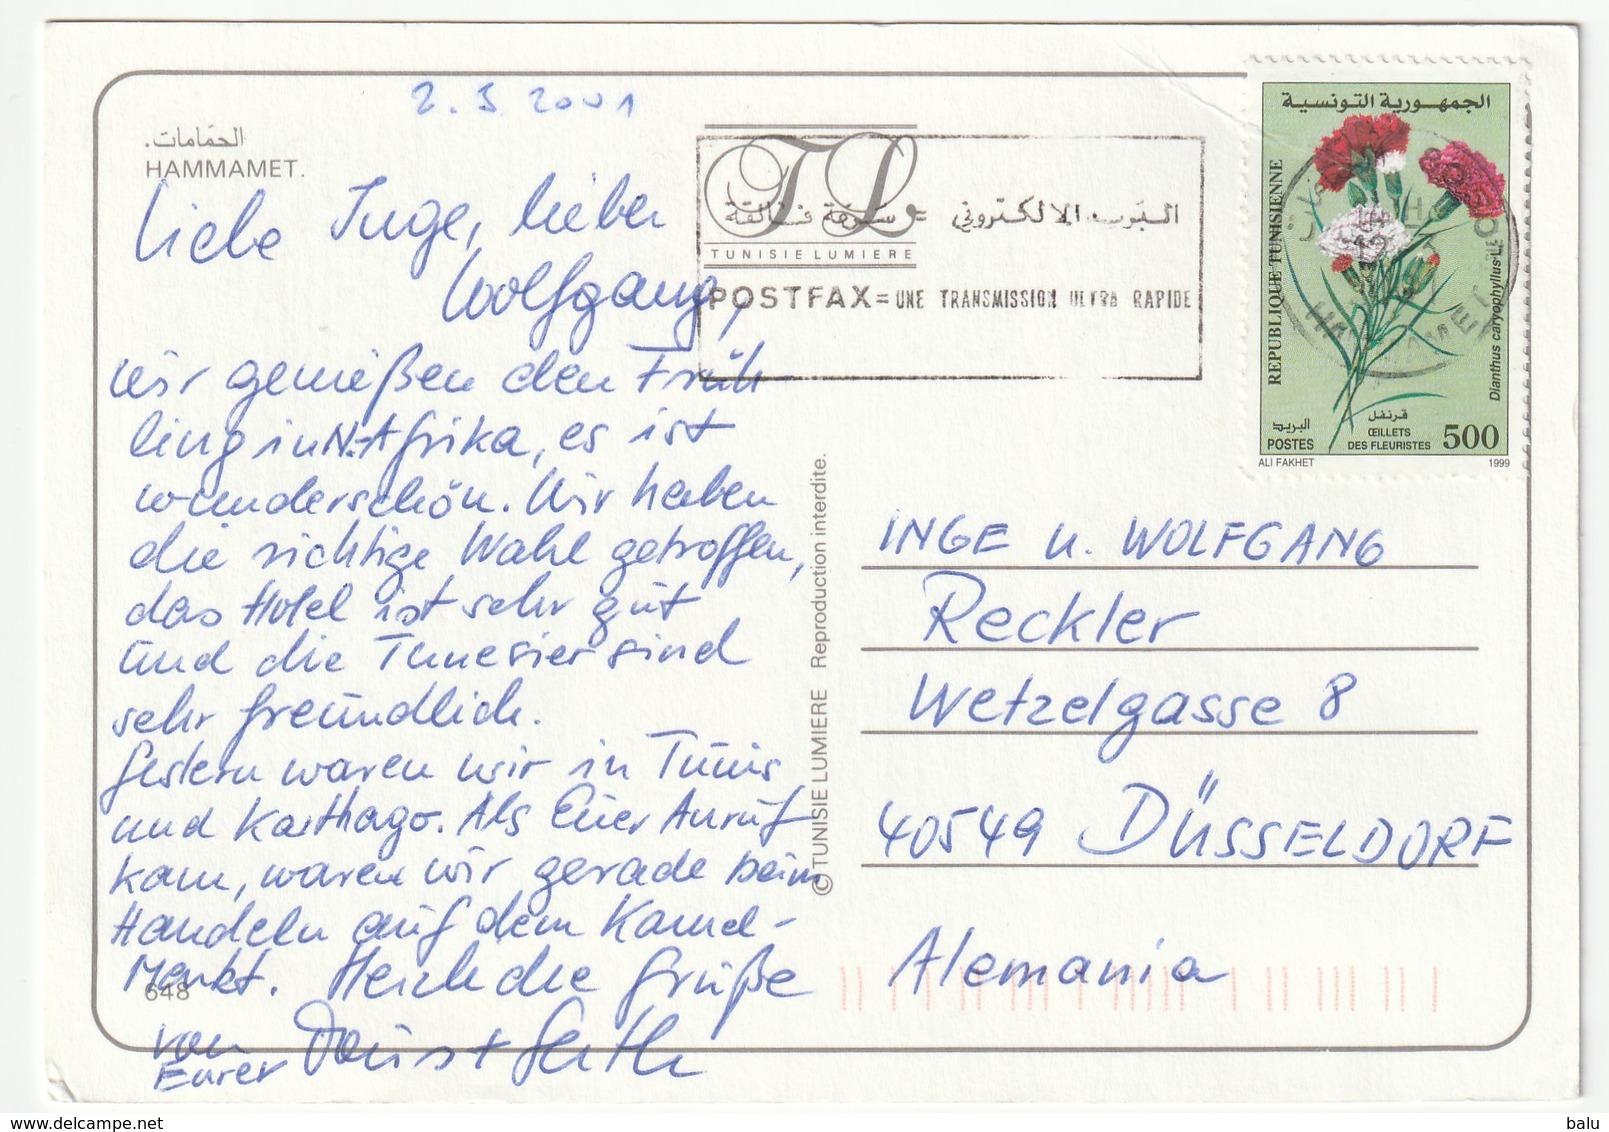 2.3 2001
الحمّامات.
HAMMAMET.
Liebe Inge, lieber
Wolfgang,
wir genießen den Früh-
ling in N-Afrika, es ist
wunderschön. Wir haben
die richtige Wahl getroffen,
das Hotel ist sehr gut
und die Tunesier sind
sehr freundlich.
Gestern waren wir in Tunis
und Karthago. Als Euer Anruf
kam, waren wir gerade beim
Handeln auf dem Kamel-
Markt. Herzliche Grüße
von
Eurer
648
TL
البريد الالكتروني = سرعة فائقة
TUNISIE LUMIERE
POSTFAX = UNE TRANSMISSION ULTRA RAPIDE
© TUNISIE LUMIERE Reproduction interdite.
الجمهورية التونسية
REPUBLIQUE TUNISIENNE
Dianthus caryophyllus L.
قرنفل
البريد
ŒILLETS
POSTES DES FLEURISTES 500
ALI FAKHET 1999
INGE u. WOLFGANG
Reckler
Wetzelgasse 8
40549 DÜSSELDORF
Alemania
delcampe.net
balu